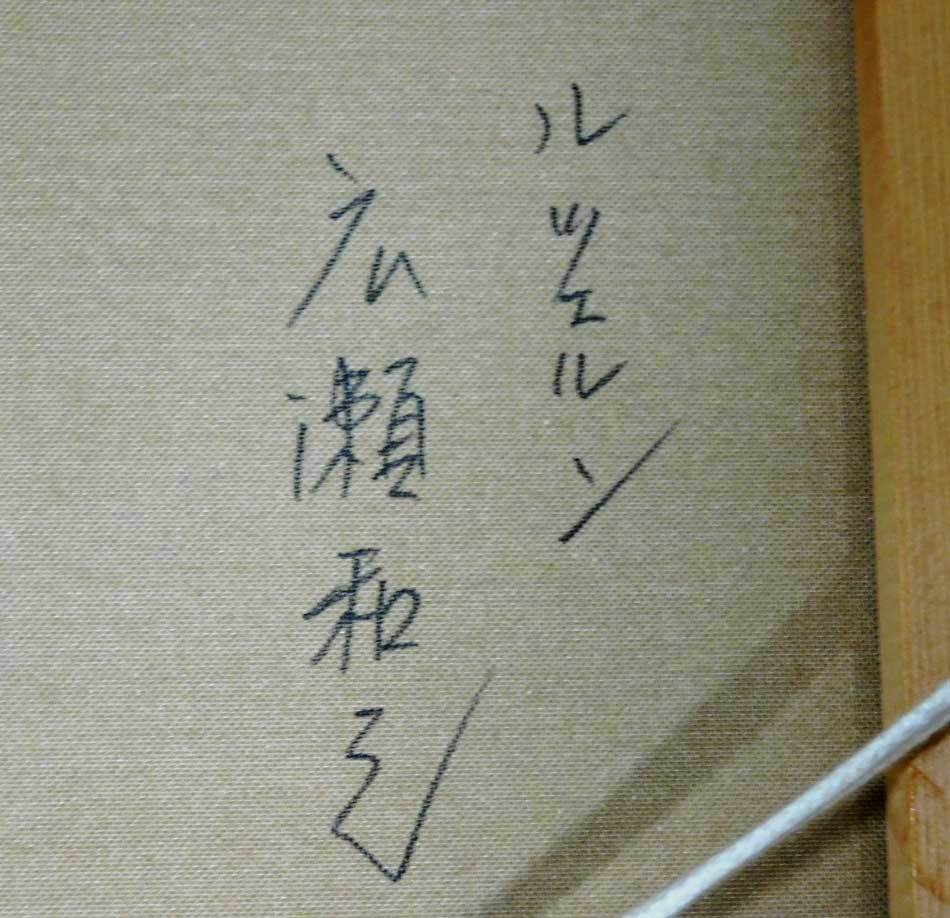 ルツェルン
広瀬和